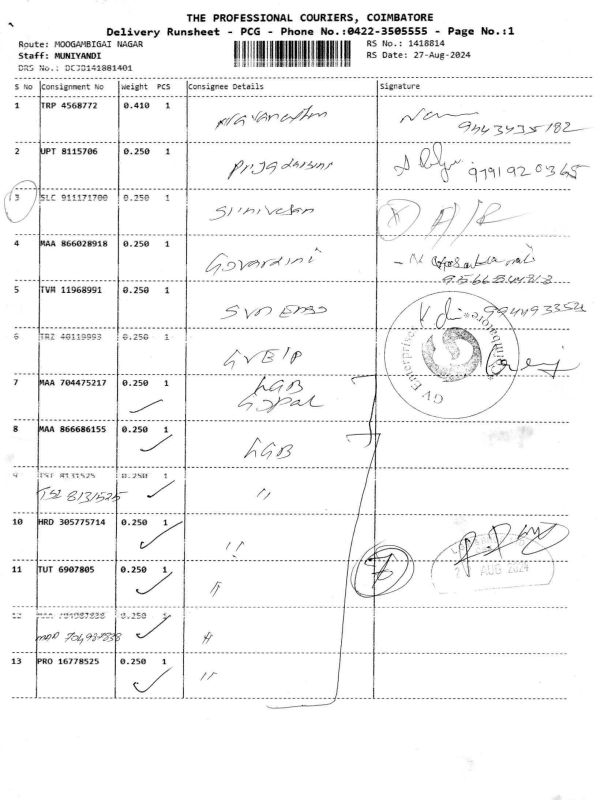 THE PROFESSIONAL COURIERS, COIMBATORE
Delivery Runsheet - PCG - Phone No.:0422-3505555 - Page No.:1
Route: MOOGAMBIGAI NAGAR RS No.: 1418814
Staff: MUNIYANDI RS Date: 27-Aug-2024
DRS No.: DCJD141881401
S No Consignment No Weight PCS Consignee Details Signature
1 TRP 4568772 0.410 1
9443435182
2 UPT 8115706 0.250 1 Priyadarsini
9791920365
3 SLC 911171700 0.250 1 Srinivesan
4 MAA 866028918 0.250 1 Govardini
5 TVM 11968991 0.250 1
6 TRZ 40119993 0.250 1 GVEIP
GV Enterprise Coimbatore
7 MAA 704475217 0.250 1 LGB
Gopal
8 MAA 866686155 0.250 1 LGB
9 TSI 8131525 0.250 1
TSI 8131525 "
10 HRD 305775714 0.250 1 "
AUG 2024
11 TUT 6907805 0.250 1 "
7
12 MAA 704987838 0.250 1
MAA 704987838 "
13 PRO 16778525 0.250 1 "